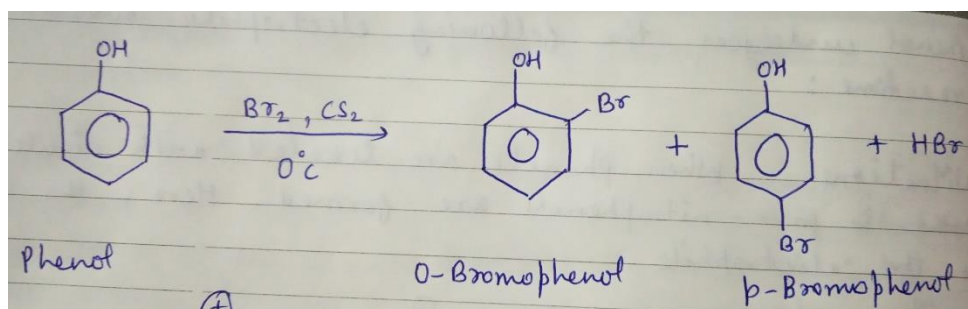 OH
Br₂, CS₂
0°C
OH
Br
+
OH
Br
+ HBr
Phenol
O-Bromophenol
p-Bromophenol